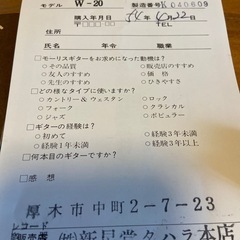 モデル W-20 製造番号 K040609
購入年月日 54年 6月22日
〒□□□-□□ TEL
住所
氏名 年令 職業
■モーリスギターをお求めになった動機は？
□その品質 □販売店のすすめ
□友人のすすめ □価格
□先生のすすめ □ひきやすさ
■どの様なタイプに使いますか？
□カントリー&ウェスタン □ロック
□フォーク □クラシカル
□ジャズ □ポピュラー
■ギターの経験は？
□初めて □経験3年未満
□経験1年未満 □経験3年以上
■何本目のギターですか？
■感想
厚木市中町2-7-23
レコード